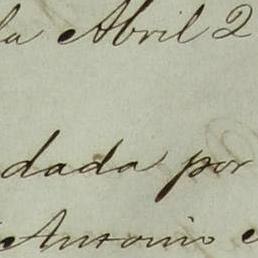 la Abril 2
dada por
Antonio